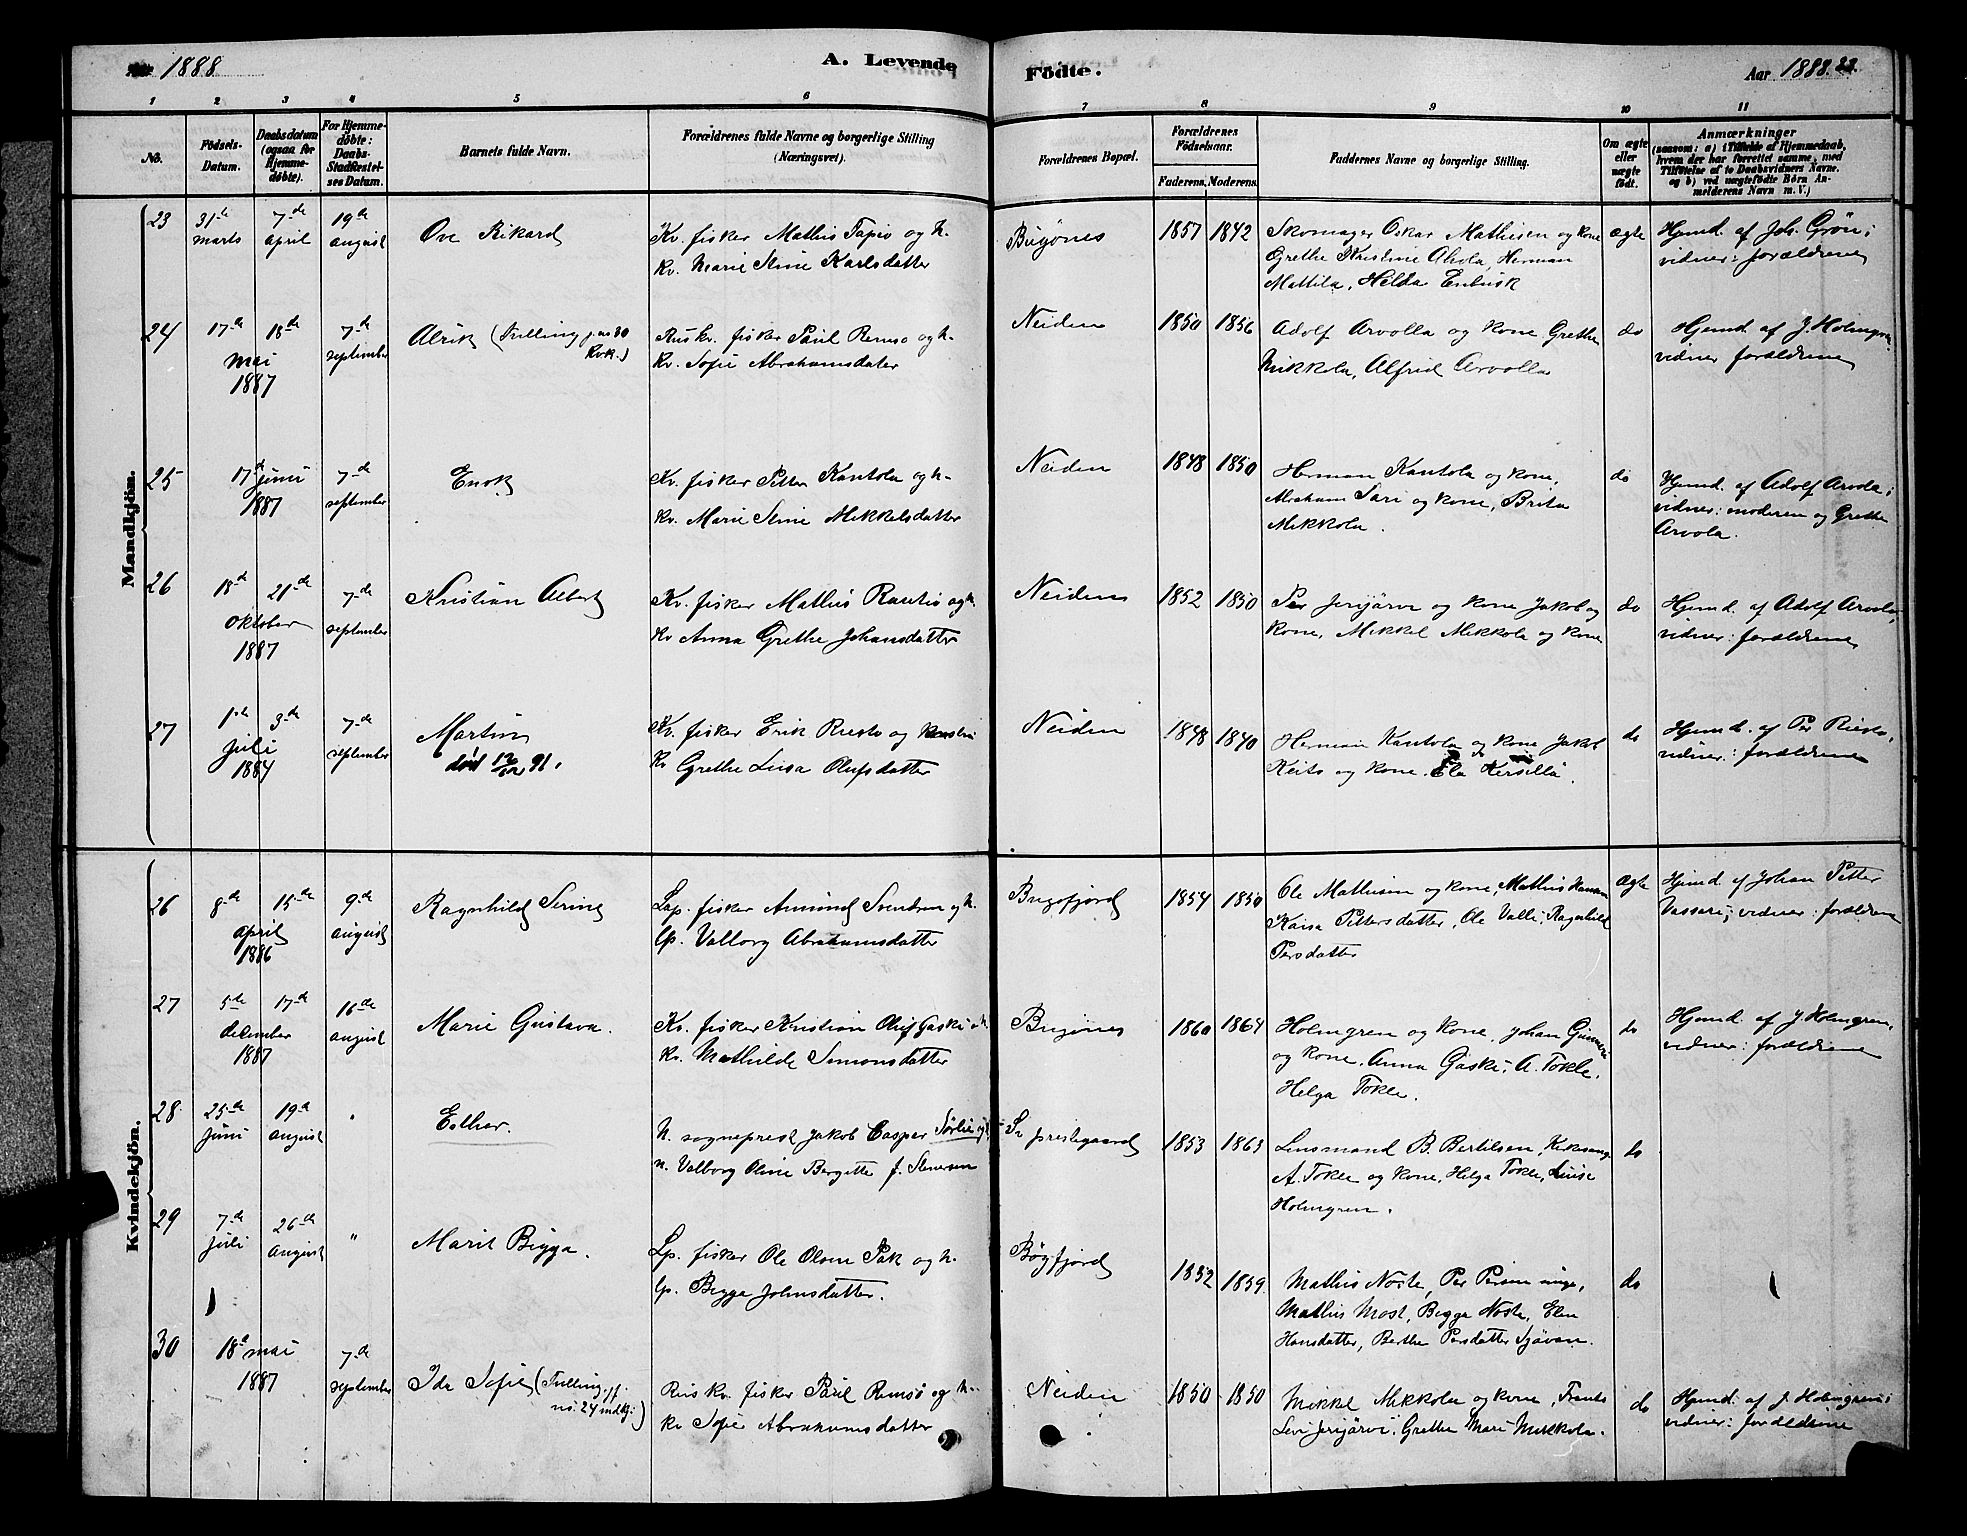 Aar 1888.
A. Levende
Födte.
Aar 1888. 22.
1 2 3 4 5 6 7 8 9 10 11
No.
Födsels-
Datum.
Daabsdatum
(ogsaa for
Hjemme-
døbte).
For Hjemme-
døbte:
Daabs-
Stadfæstel-
ses Datum.
Barnets fulde Navn.
Forældrenes fulde Navne og borgerlige Stilling
(Næringsvei).
Forældrenes Bopæl.
Forældrenes
Fødselsaar.
Faderens. Moderens.
Faddernes Navne og borgerlige Stilling.
Om ægte
eller
uægte
født.
Anmærkninger
(saasom: a) i Tilfælde af Hjemmedaab,
hvem der har forrettet samme, med
Tilføielse af to Daabsvidners Navne,
og b) ved uægtefødte Børn An-
melderens Navn m. V.)
Mandkjön.
23
31te
marts
7de
april
19de
august
Ove Rikard
Kv. fisker Mathis Tapio og h.
kv. Marie Stine Karlsdatter
Bugönes
1857 1842
Skomager Oskar Mathisen og kone
Grethe Kristine Ahola, Herman
Mattila, Hilda Enbusk
ægte
Hjemd. af Joh. Grön;
vidner: forældrene
24
17de 18de
mai
1887
7de
september
Alrik (Tvilling jvs 30
kvk.)
Rus kv. fisker Paul Remsö og h.
kv. Sofie Abrahamsdater
Neiden
1850 1856
Adolf Arvolla og kone Grethe
Mikkola, Alfrid Arvolla
do
Hjemd. af J. Holmgren
vidner forældrene
25
17de juni
1887
7de
september
Enok
Kv. fisker Petter Kantola og h.
kv. Marie Stine Mikkelsdatter
Neiden
1848 1850
Herman Kantola og kone,
Abraham Sari og kone, Brita
Mikkola.
do
Hjemd. af Adolf Arvola;
vidner: moderen og Grethe
Arvola.
26
18de 21de
oktober
1887
7de
september
Kristian Albert
Kv. fisker Mathis Rantio og h.
kv Anna Grethe Johansdatter
Neiden
1852 1850
Per Jerijärvi og kone Jakob og
kone, Mikkel Mikkola og kone
do
Hjemd. af Adolf Arvola,
vidner: forældrene
27
1ste 3de
juli
1884
7de
september
Martin
död 12/12 91.
Kv. fisker Erik Riesto og hustru
kv Grethe Lisa Olufsdatter
Neiden
1848 1840
Herman Kantola og kone Jakob
Keito og kone. Ela
do
Hjemd. af Per Riesto,
vidner: forældrene
Kvindekjön.
26
8de 15de
april
1886
9de
august
Ragnhild Serine
Lap. fisker Amund Svendsen og h.
lp. Valborg Abrahamsdatter
Bugofjord
1854 1850
Ole Mathisen og kone, Mathis Hansen
Kaisa Pettersdatter, Ole Valli, Ragnhild
Persdatter
ægte
Hjemd. af Johan Petter
Vassari; vidner: forældrene
27
5de 17de
december
1887
16de
august
Marie Gustava.
Kv. fisker Kristian Oluf Gaski o h.
kv. Mathilde Simonsdatter
Bugönes
1860 1864
Holmgren og kone, Johan
og kone, Anna Gaski, A. Tokle,
Helga Tokle.
do
Hjemd. af J. Holmgren,
vidner: forældrene
28
25de
juni
19de
august
"
Esther.
N. sogneprest Jakob Casper Sörlie og h.
n. Valborg Oline Bergitte f. Stenersen
Sv prestegaard
1853 1863
Lensmand B. Bertilsen, Kirkesanger
A. Tokle og kone, Helga Tokle, Louise
Holmgren.
do
29
7de
juli
26de
august
"
Marit Bigga.
Lp. fisker Ole Olsen Pak og h.
lp. Bigga Johnsdatter.
Bögfjord
1852 1859
Mathis Noste, Per Persen unge,
Mathis Most, Bigga Noste, Elen
Hansdatter, Berthe Persdatter Sjåvan.
do
30
18de mai
1887
7de
september
Ida Sofie (Tvilling jf.
no. 24 mdkj:)
Rus kv. fisker Paul Remsö og h.
kv Sofie Abrahamsdatter
Neiden
1850 1850
Mikkl Mikkola og kone, Frants
Levi Jerijärvi, Grethe Mari Mikkola.
do
Hjemd. af J. Holmgren;
vidner: forældrene